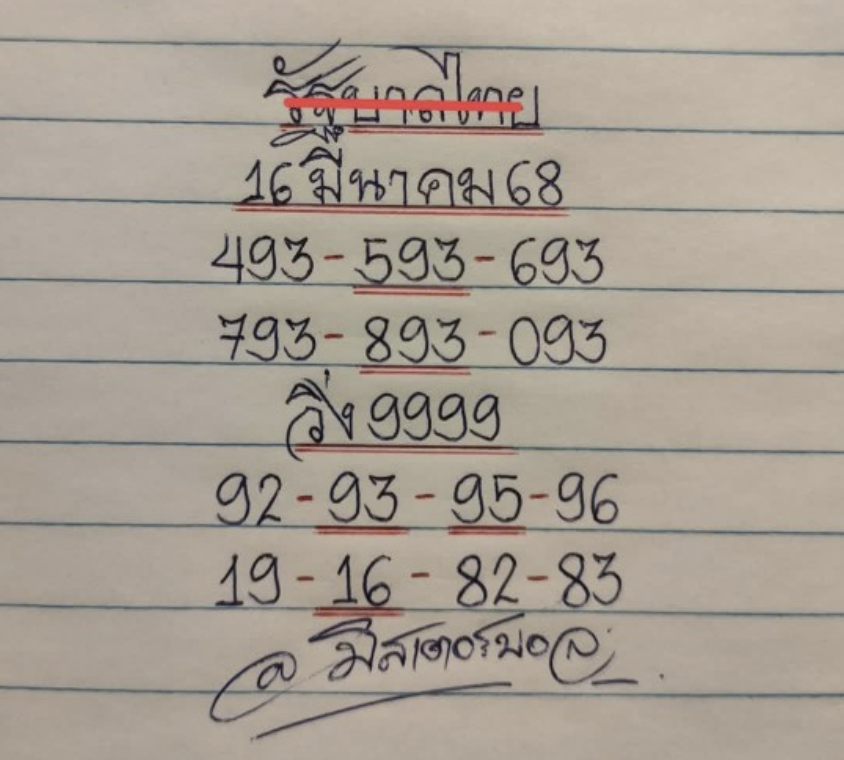 รัฐบาลไทย
16 มีนาคม 68
493-593-693
793-893-093
วิ่ง 9999
92-93-95-96
19-16-82-83
@ มิสเตอร์บอล